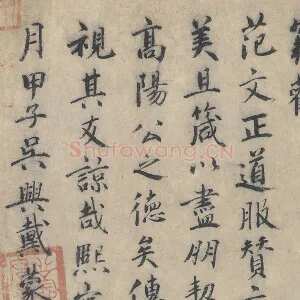 范文正道服贊
美且箴以盡朋契
高陽公之德矣傳
視其友諒哉熙寧
月甲子吳興戴蒙
Shufawang.CN